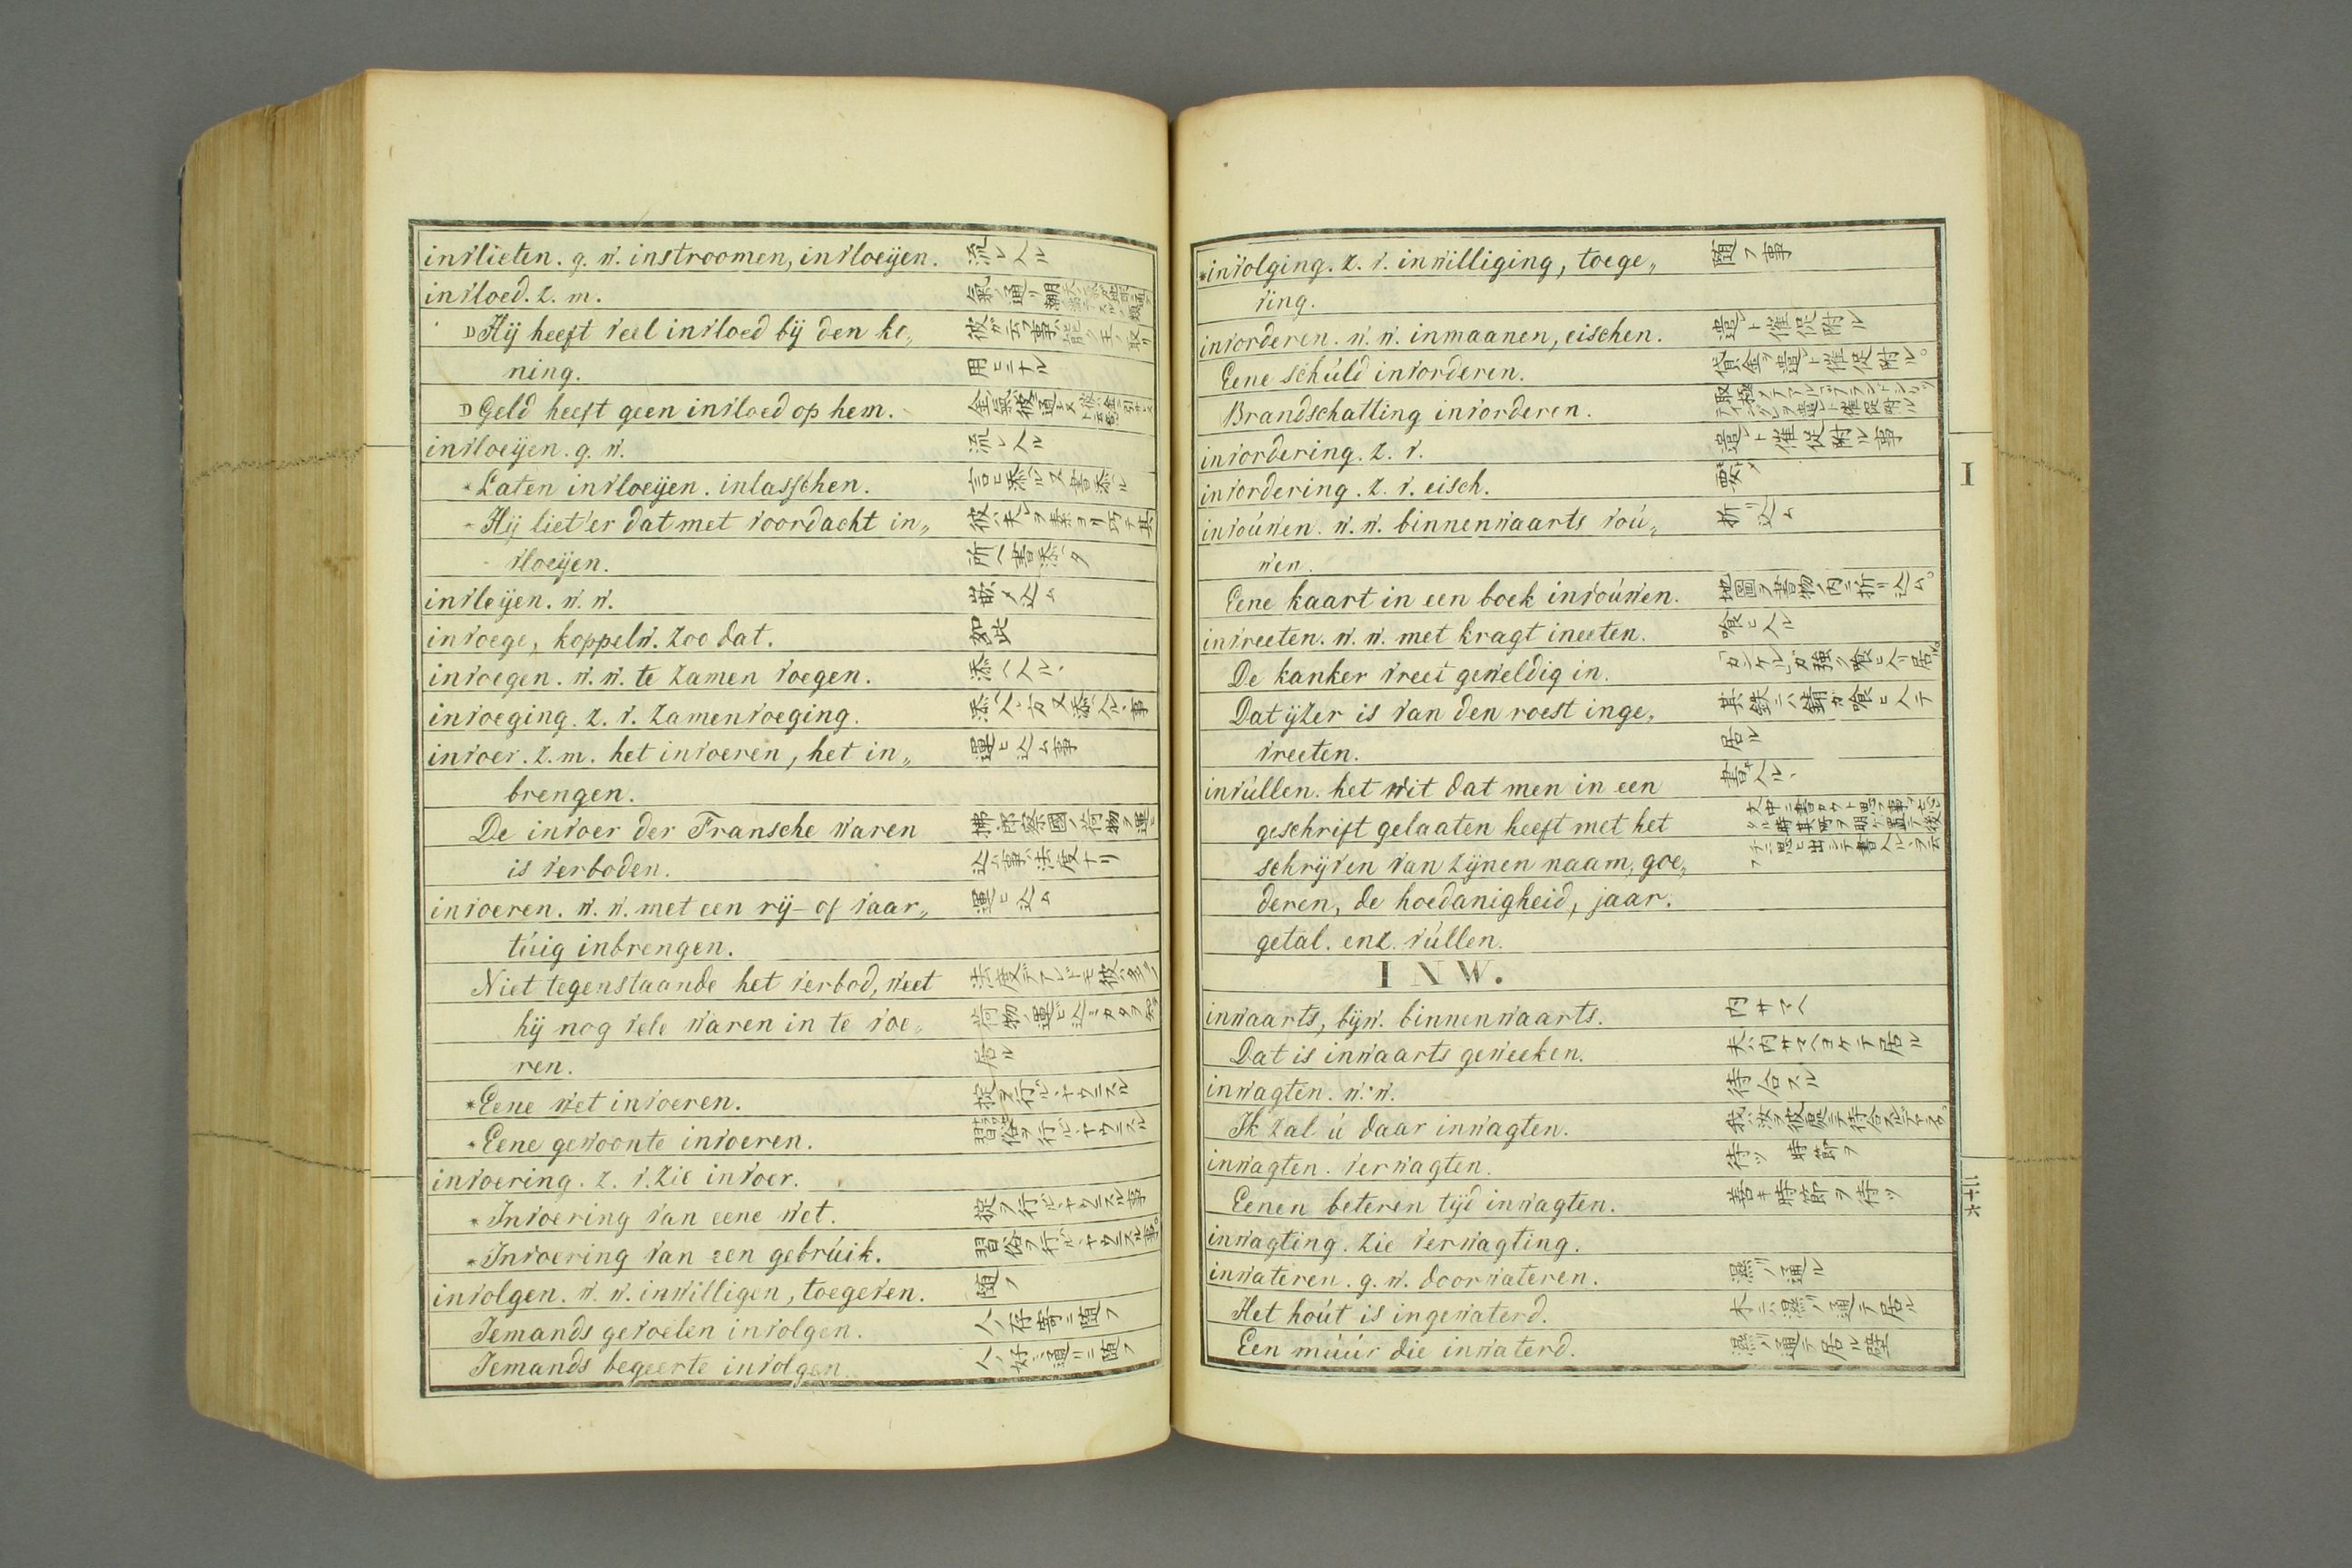 invlieten. g. w. instroomen, invloeijen. 流レ入ル
invloed. z. m. 氣ノ通リ
D Hij heeft veel invloed bij den ko„ 彼ガ云フ事ハ能ク王ノ取リ
ning. 用ヒニナル
D Geld heeft geen invloed op hem.
invloeijen. g. w. 流レ入ル
*Laten invloeijen. inlasschen. 言ヒ添ル又書添ル
- Hij liet'er dat met voordacht in„
vloeijen. 所ヘ書添タ
invleijen. w. w. 嵌メ込ム
invoege, koppelw. zoo dat. 如此
invoegen. w. w. te zamen voegen. 添ヘ入ル、
invoeging. z. v. zamenvoeging.
invoer. z. m. het invoeren, het in„ 運ヒ込ム事
brengen.
De invoer der Fransche waren 拂郎察國ノ荷物ヲ運ヒ
is verboden. 込ム事ハ法度ナリ
invoeren. w. w. met een rij- of vaar„ 運ヒ込ム
túig inbrengen.
Niet tegenstaande het verbod, weet 法度デアレドモ彼ハ多ク
hij nog vele waren in te voe„
ren. 居ル
*Eene wet invoeren. 掟ヲ行ルヽヤウニスル
*Eene gewoonte invoeren. 習俗ヲ行ルヽヤウニスル
invoering. z. v. zie invoer.
*Invoering van eene wet. 掟ヲ行ルヽヤウニスル事
*Invoering van een gebrúik. 習俗ヲ行ルヽヤウニスル事。
involgen. w. w. inwilligen, toegeven. 随フ
Iemands gevoelen involgen. 人ノ存寄ニ随フ
Iemands begeerte involgen. 人ノ好ミ通リニ随フ
*involging. z. v. inwilliging, toege„ 随フ事
ving.
invorderen. w. w. inmaanen, eischen. 遣レト催促附ル
Eene schúld invorderen. 貸金ヲ遣レト催促附ル。
Brandschatting invorderen.
invordering. z. v. 遣レト催促附ル事
invordering. z. v. eisch.
invoúwen. w. w. binnenwaarts voú„ 折リ込ム
wen.
Eene kaart in een boek invoúwen. 地圖ヲ書物ノ内ニ折リ込ム。
invreeten. w. w. met kragt ineeten. 喰ヒ入ル
De kanker vreet geweldig in. 「カンケル」ガ強ク喰ヒ入リ居ル。
Dat ijzer is van den roest inge„ 其鉄ニハ錆ガ喰ヒ入テ
vreeten. 居ル
invúllen. het wit dat men in een 書キ入ル、
geschrift gelaaten heeft met het
schrijven van zijnen naam, goe„
deren, de hoedanigheid, jaar.
getal. enz. vúllen.
INW.
inwaarts, bijw. binnenwaarts. 内サマヘ
Dat is inwaarts geweeken. 夫ハ内サマヘヨケテ居ル
inwagten. w. w. 待合スル
Ik zal ú daar inwagten.
inwagten. verwagten. 待ツ 時節ヲ
Eenen beteren tijd inwagten. 善キ時節ヲ待ツ
inwagting. zie verwagting.
inwateren. g. w. doorwateren. 濕リノ通ル
Het hoút is ingewaterd. 木ニ濕リノ通テ居ル
Een múúr die inwaterd. 濕リノ通テ居ル壁
I
二十六